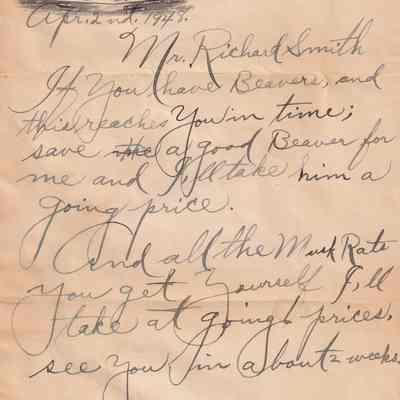 Apr. 2nd. 1948.
Mr. Richard Smith
If You have Beavers, and
this reaches You in time;
save me a good Beaver for
me and I,ll take him a
going price.
And all the Musk Rats
You get Yourself I,ll
take at going prices.
see You in about 2 weeks.